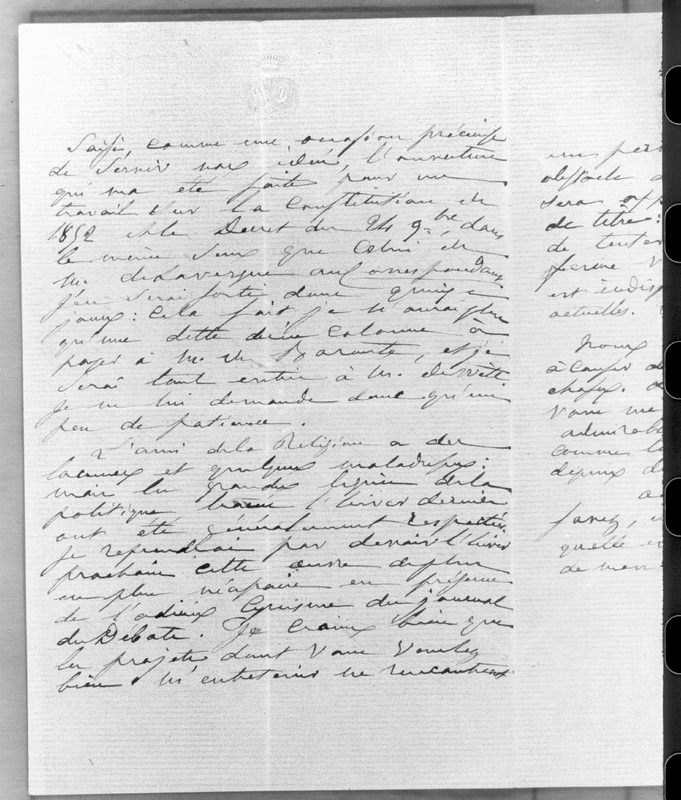 Saisir, comme une occasion précieuse
de servir nos idées, l'ouverture
qui m'a été faite pour un
travail sur la Constitution de
1852 et le Décret du 24 9bre, dans
le même sens que celui de
M. de Lavergne au Correspondant
j'en serai sorti dans quinze
jours : cela fait je n'aurai plus
qu'une dette d'une colonne à
payer à M. de Barante, et je
serai tout entier à M. de Witt
je ne lui demande donc qu'un
peu de patience.
L'ami de la Religion a des
lacunes et quelques maladresses :
mais les grandes lignes de la
politique l'hiver dernier
ont été généralement respectées.
Je reprendrai par devoir l'hiver
prochain cette œuvre de plus
en plus nécessaire en présence
de l'odieux cynisme du journal
des Débats. Je crains bien que
les projets dont vous voulez
bien m'entretenir ne rencontrent
un
obstacle
sera
de titre :
de
est
actuelles.
Nous
à causer de
vous me
admirable
comme
depuis
quelle
de mon